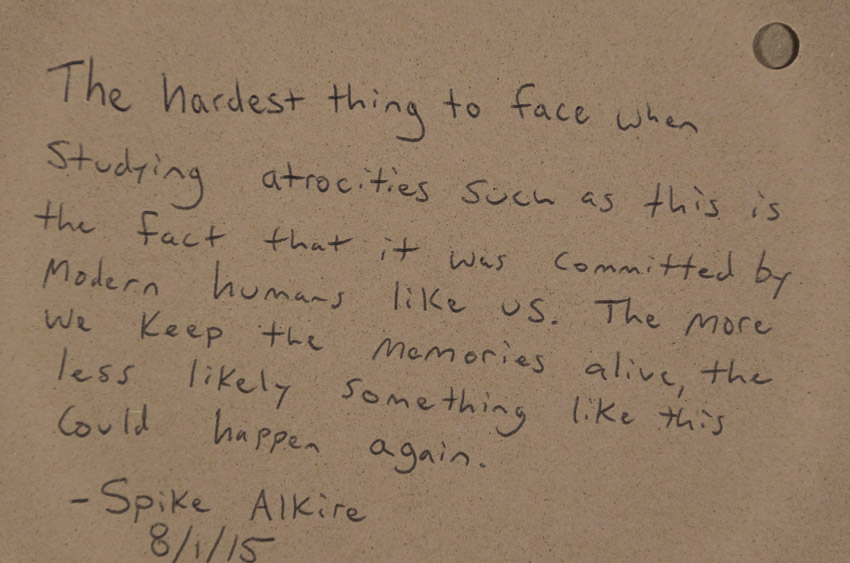 The hardest thing to face when
Studying atrocities such as this is
the fact that it was committed by
Modern humans like us. The more
we keep the memories alive, the
less likely something like this
Could happen again.
-Spike Alkire
8/1/15